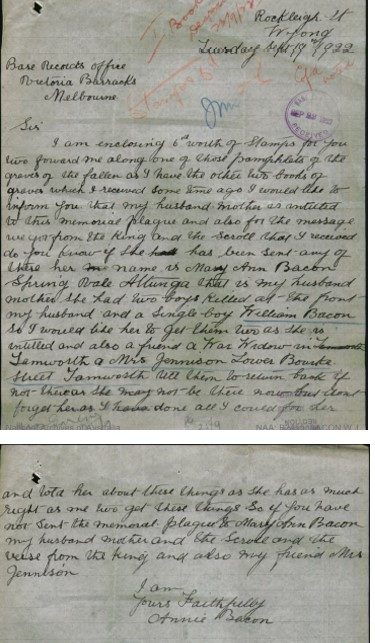 Rockleigh St
Wyong
Tuesday Sept 19th 1922
Base Records Office
Victoria Barracks
Melbourne
Stamps 6d
RECEIVED
Sir
I am enclosing 6d worth of Stamps for you
two forward me along one of those pamphlets of the
graves of the fallen as I have the other two books of
graves which I received some time ago I would like to
inform you that my husband mother is intitled
to this memorial plague and also for the message
we got from the King and the Scroll that I received
do you know if she has been sent any of
these her name is Mary Ann Bacon
Spring Vale Attunga that is my husband
mother she had two boys killed at the front
my husband and a single boy William Bacon
so I would like her to get them two as she is
intitled and also a friend a War Widow in
Tamworth a Mrs Jennison Lower Bourke
Street Tamworth tell them to return back if
not their as she may not be there now but dont
forget her as I have done all I could for her
National Archives of Australia
NAA:
BACON W J
and told her about these things as she has as much
right as me two get these things So if you have
not sent the memoral plague to Mary Ann Bacon
my husband mother and the Scrole and the
verse from the king and also my friend Mrs
Jennison
I am
Yours Faithfully
Annie Bacon